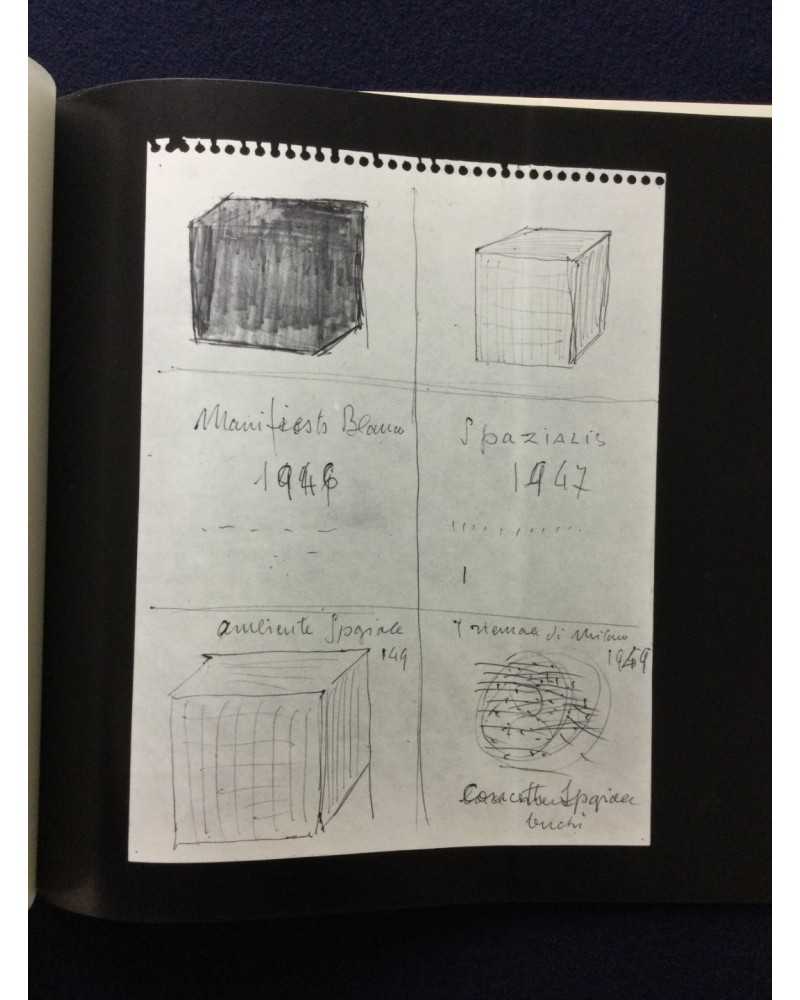 Manifiesto Blanco
1946
Spazialis
1947
ambiente Spaziale
149
Triennale di Milano
1949
Concetto Spaziale
buchi